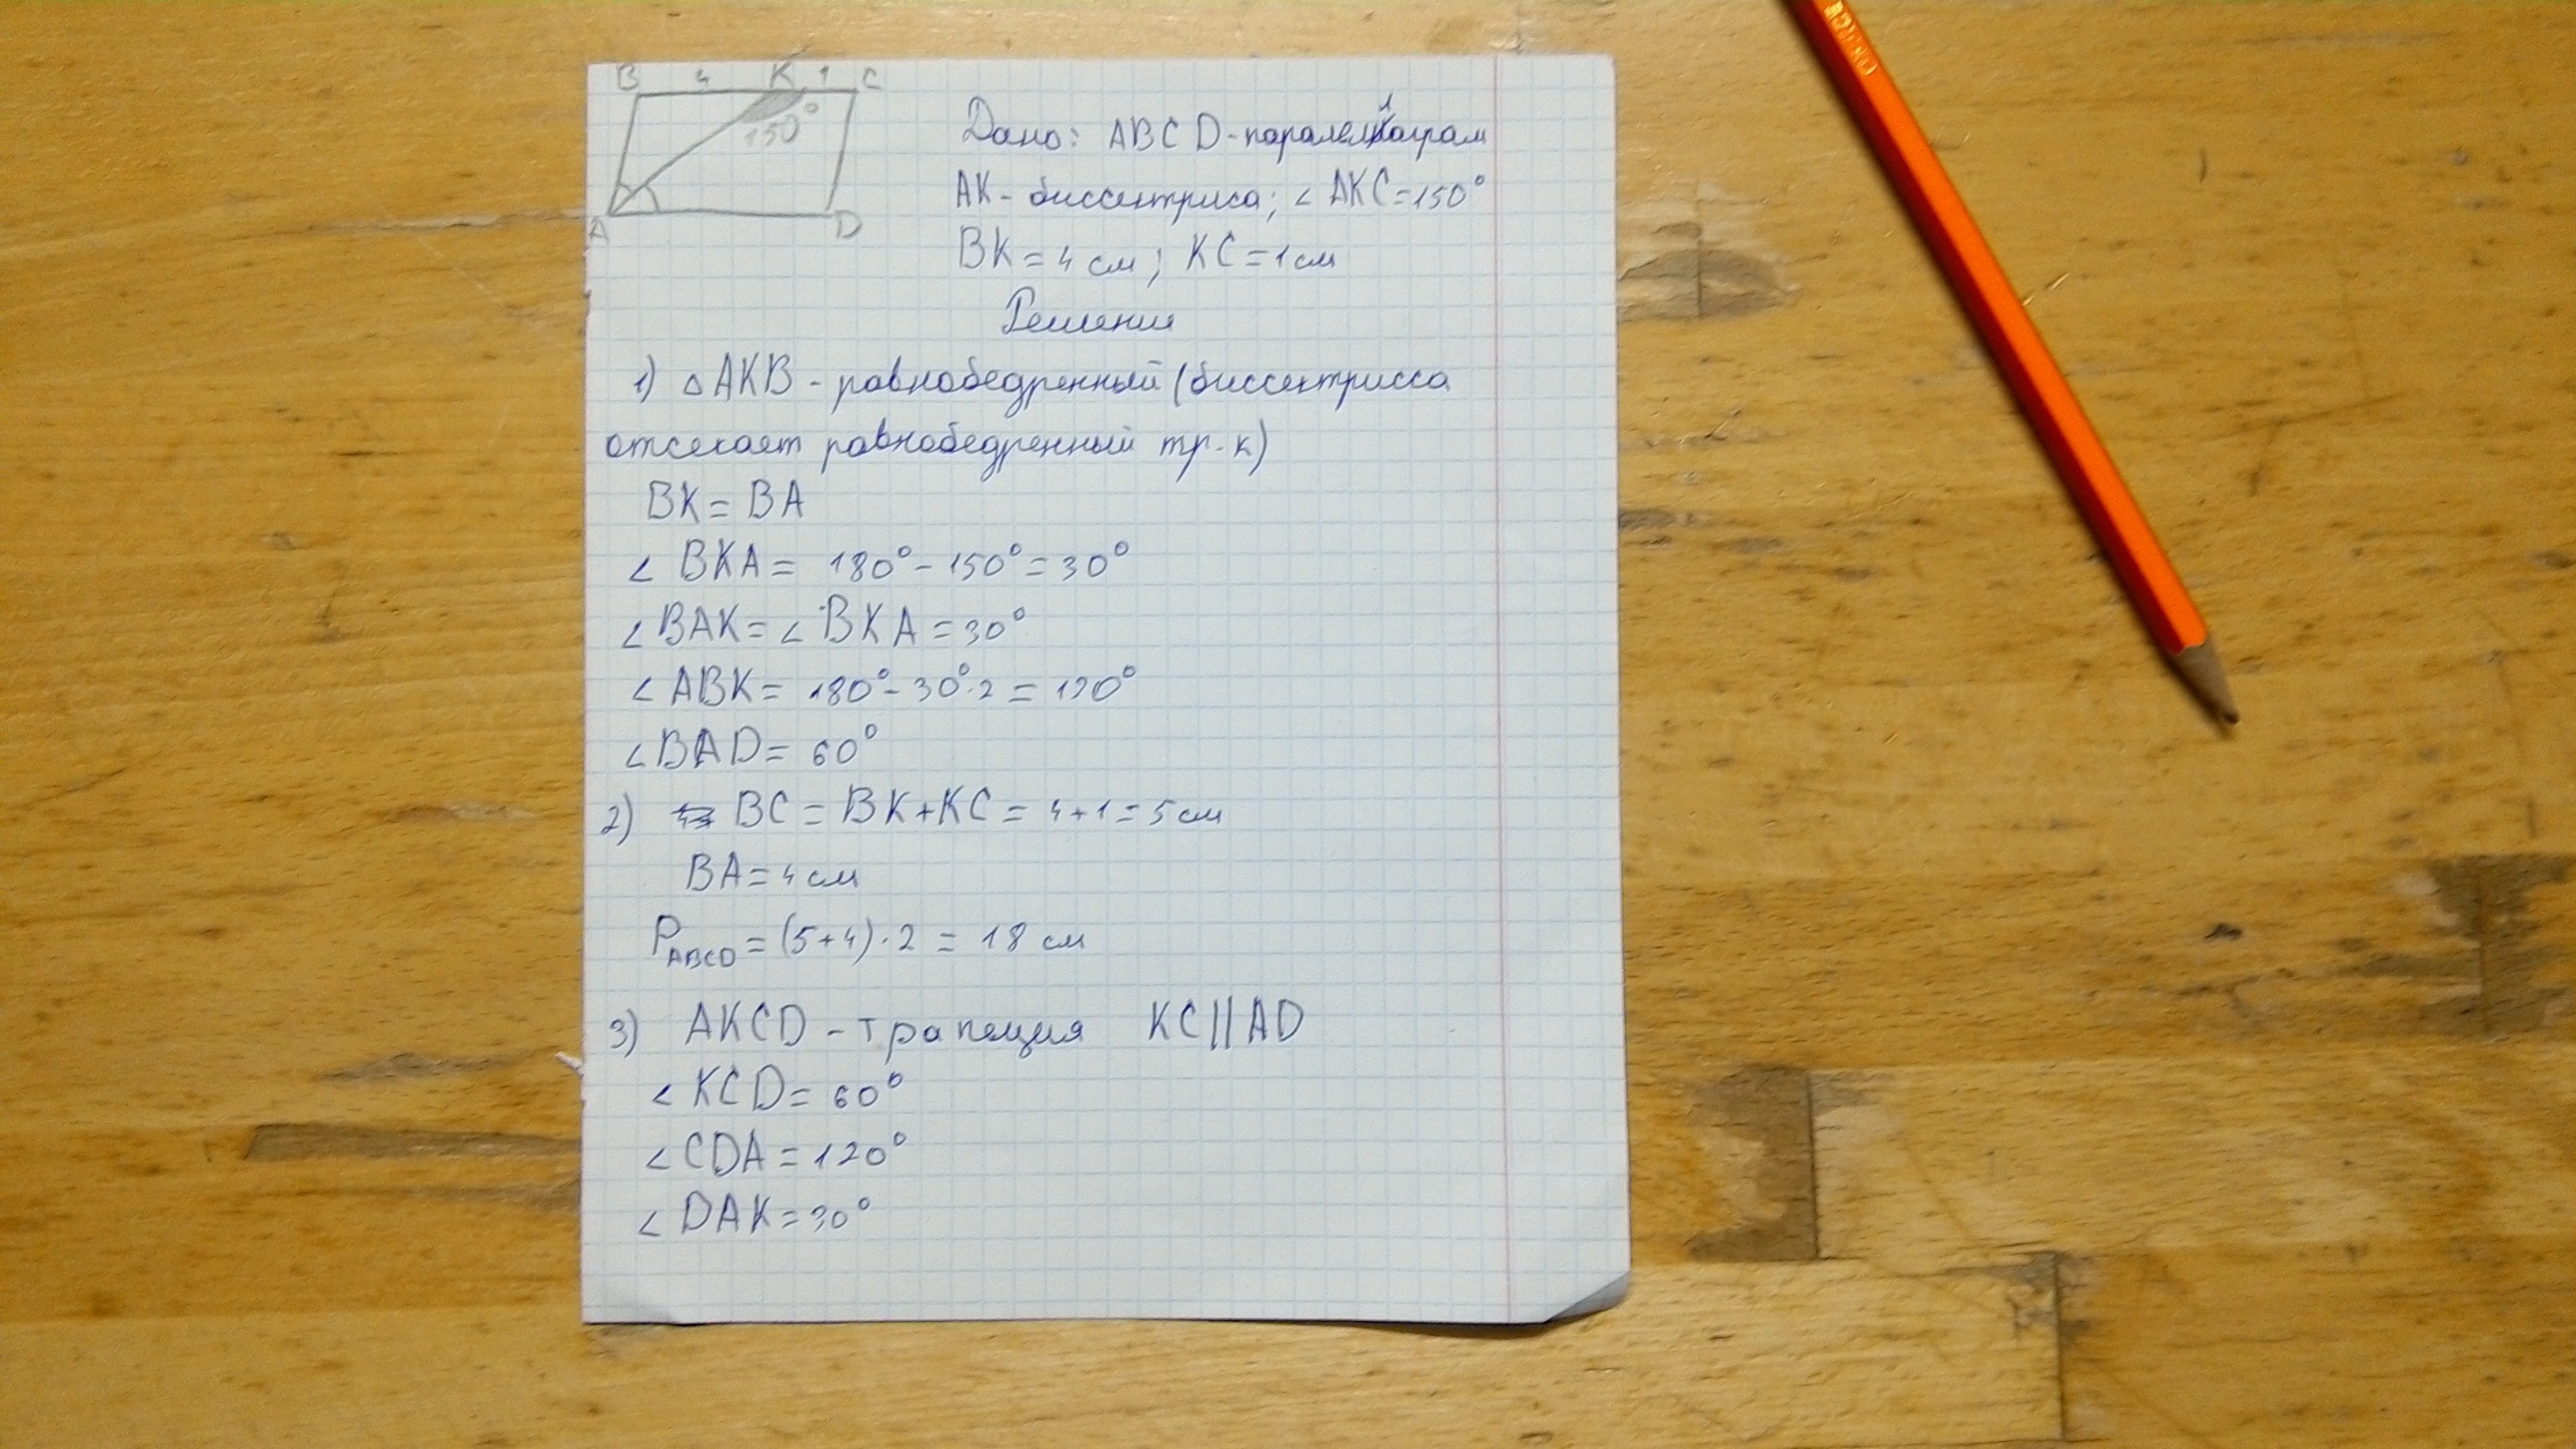 B 4 K 1 C
150°
A D
Дано: ABCD-паралелограм
AK- биссектриса; ∠ AKC=150°
BK=4 см; KC=1см
Решение
1) △AKB - равнобедренный (биссектрисса
отсекает равнобедренный тр-к)
BK= BA
∠ BKA= 180°-150°=30°
∠ BAK=∠ BKA =30°
∠ ABK= 180°-30°·2 = 120°
∠BAD= 60°
2) BC = BK+KC = 4+1=5см
BA=4см
PABCD=(5+4)·2 = 18 см
3) AKCD - трапеция KC||AD
∠ KCD= 60°
∠ CDA=120°
∠ DAK=30°